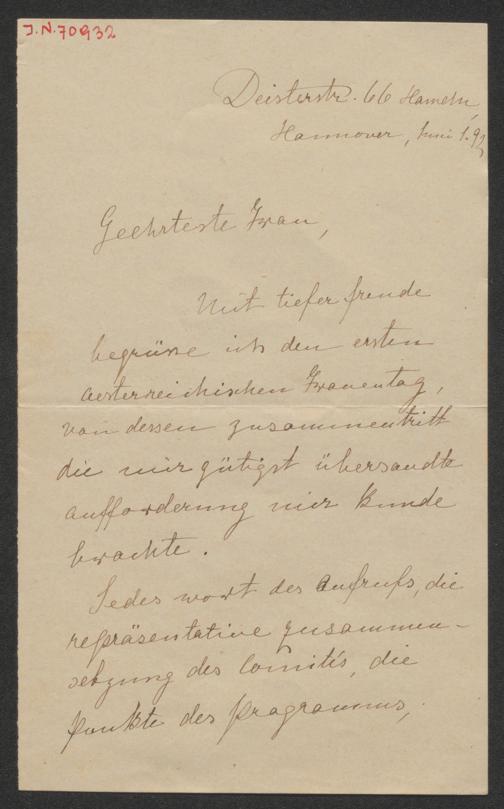 J.N. 70932
Deisterstr. 66 Hameln,
Hannover, Juni 1. 92
Geehrteste Frau,
Mit tiefer freude
begrüsse ich den ersten
oesterreichischen Frauentag,
von dessen zusammentritt
die mir gütigst übersandte
aufforderung mir kunde
brachte.
Jedes wort des aufrufs, die
repräsentative zusammen-
setzung des Comités, die
punkte des programms,